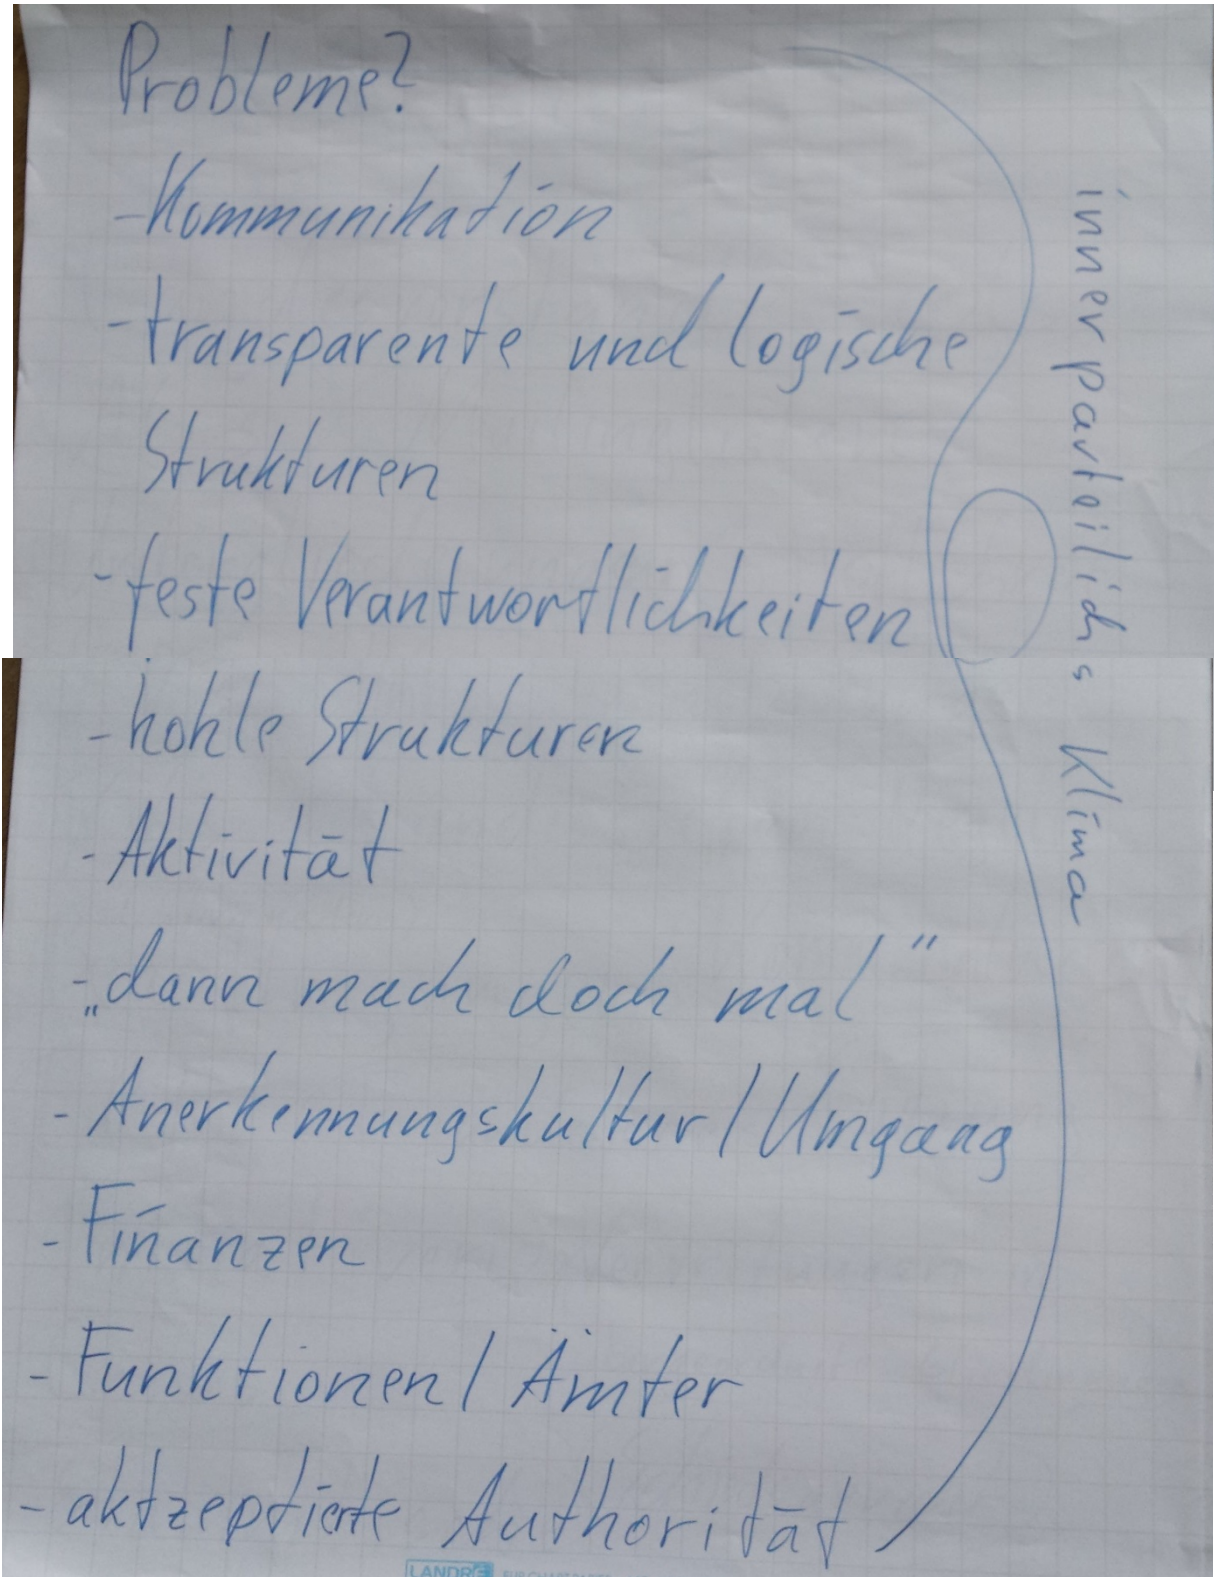 Probleme?
- Kommunikation
- transparente und logische
Strukturen
- feste Verantwortlichkeiten
- hohle Strukturen
- Aktivität
- „dann mach doch mal“
- Anerkennungskultur / Umgang
- Finanzen
- Funktionen / Ämter
- aktzeptierte Authorität
innerparteilichs Klima
LANDRÉ